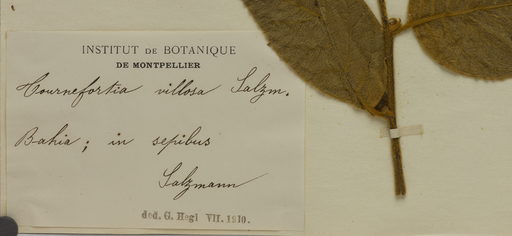 INSTITUT DE BOTANIQUE
DE MONTPELLIER
Tournefortia villosa Salzm.
Bahia; in sepibus
Salzmann
ded. G. Hegi VII. 1910.